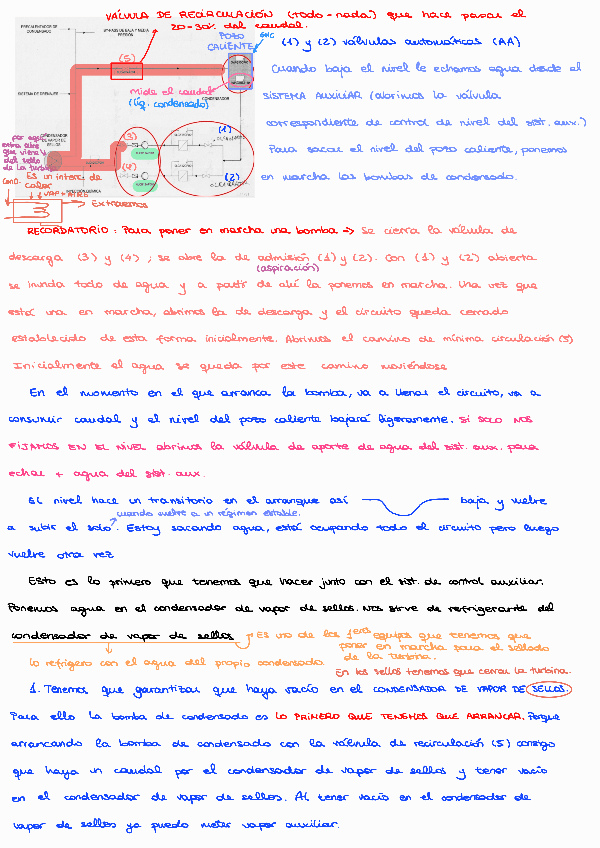 VÁLVULA DE RECIRCULACIÓN (todo-nada) que hace pasar el
20-30% del caudal.
POZO
CALIENTE
(1) y (2) válvulas automáticas (AA)
(5)
Mide el caudal
(líq. condensado)
CONDENSADOR
SISTEMA DE DRENAJES
Cuando baja el nivel le echamos agua desde el
SISTEMA AUXILIAR (abrimos la válvula
correspondiente de control de nivel del sist. aux.)
Para sacar el nivel del pozo caliente, ponemos
en marcha las bombas de condensado.
(3)
(4)
(1)
(2)
por aquí
entra aire
que viene
del sello
de la turbina
Es un interc. de
calor
COND.
VAP + AIRE
Extraemos
RECORDATORIO: Para poner en marcha una bomba → Se cierra la válvula de
descarga (3) y (4), se abre la de admisión (1) y (2). Con (1) y (2) abierta
(aspiración)
se inunda todo de agua y a partir de ahí la ponemos en marcha. Una vez que
está una en marcha, abrimos la de descarga y el circuito queda cerrado
establecido de esta forma inicialmente. Abrimos el camino de mínima circulación (5)
Inicialmente el agua se queda por este camino moviéndose
En el momento en el que arranca la bomba, va a llenar el circuito, va a
consumir caudal y el nivel del pozo caliente bajará ligeramente. SI SOLO NOS
FIJAMOS EN EL NIVEL abrimos la válvula de aporte de agua del sist. aux. para
echar + agua del sist. aux.
El nivel hace un transitorio en el arranque así baja y vuelve
cuando vuelve a un régimen estable.
a subir el solo. Estoy sacando agua, está ocupando todo el circuito pero luego
vuelve otra vez
Esto es lo primero que tenemos que hacer junto con el sist. de control auxiliar.
Ponemos agua en el condensador de vapor de sellos. Nos sirve de refrigerante del
condensador de vapor de sellos → Es uno de los 1eros equipos que tenemos que
poner en marcha para el sellado
de la turbina.
lo refrigero con el agua del propio condensado
En los sellos tenemos que cerrar la turbina.
1. Tenemos que garantizar que haya vacío en el CONDENSADOR DE VAPOR DE SELLOS.
Para ello la bomba de condensado es LO PRIMERO QUE TENEMOS QUE ARRANCAR. Porque
arrancando la bomba de condensado con la válvula de recirculación (5) consigo
que haya un caudal por el condensador de vapor de sellos y tener vacío
en el condensador de vapor de sellos. Al tener vacío en el condensador de
vapor de sellos ya puedo meter vapor auxiliar.